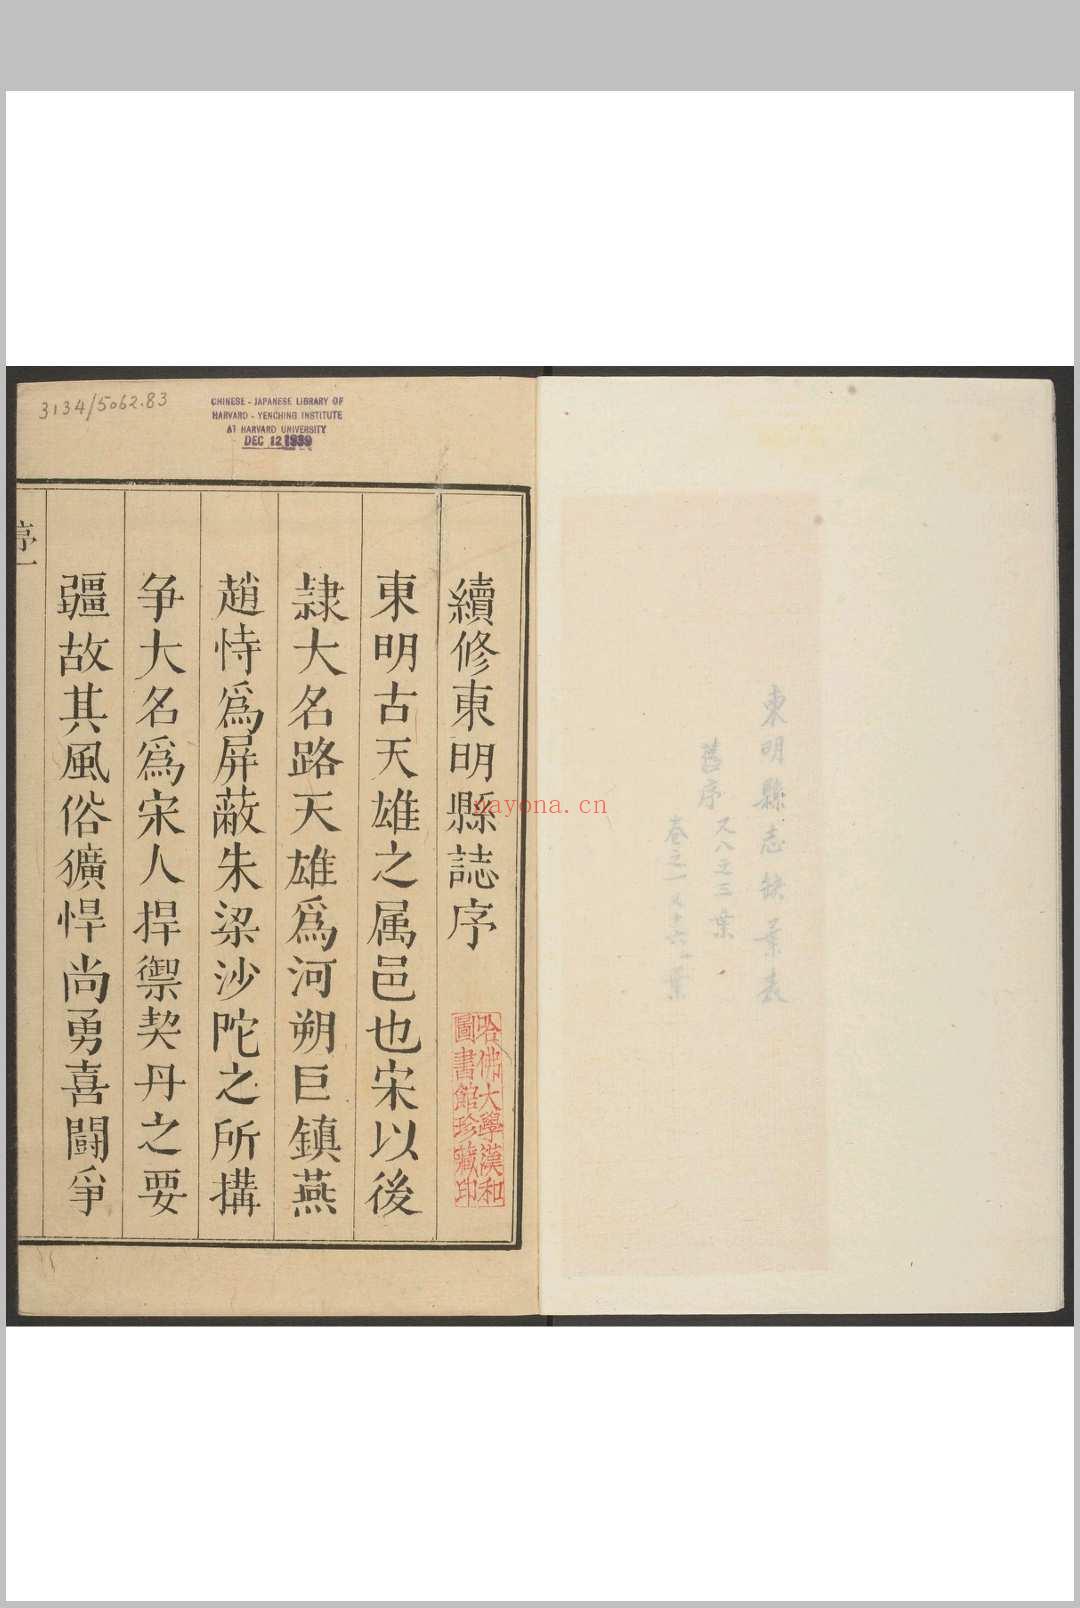 3134/5062.83
CHINESE - JAPANESE LIBRARY OF
HARVARD - YENCHING INSTITUTE
AT HARVARD UNIVERSITY
DEC 12 1939
東明縣志缺葉表
舊序 又八之三葉
卷之一 又十六葉
續修東明縣誌序
哈佛大學漢和
圖書館珍藏印
東明古天雄之属邑也宋以後
隷大名路天雄爲河朔巨鎮燕
趙恃爲屏蔽朱梁沙陀之所搆
争大名爲宋人捍禦契丹之要
疆故其風俗獷悍尚勇喜闘爭
序一
nayona.cn